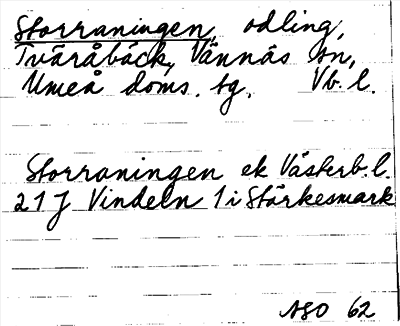 Storraningen, odling,
Tväråbäck, Vännäs sn,
Umeå doms. sg. Vb. l.
Storraningen ek Västerb. l.
21 J Vindeln 1 i Stärkesmark
ASO 62